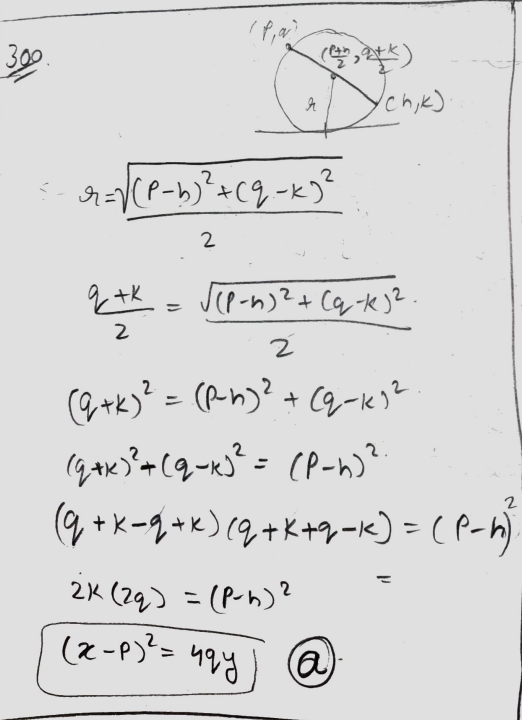 300.
(P,q)
(P+h/2, q+k/2)
r
(h,k)
r = √((P-h)²+(q-k)²) / 2
(q+k)/2 = √((P-h)²+(q-k)²) / 2
(q+k)² = (P-h)² + (q-k)²
(q+k)²+(q-k)² = (P-h)²
(q+k-q+k)(q+k+q-k) = (P-h)²
=
2k(2q) = (P-h)²
(x-P)² = 4qy (a)